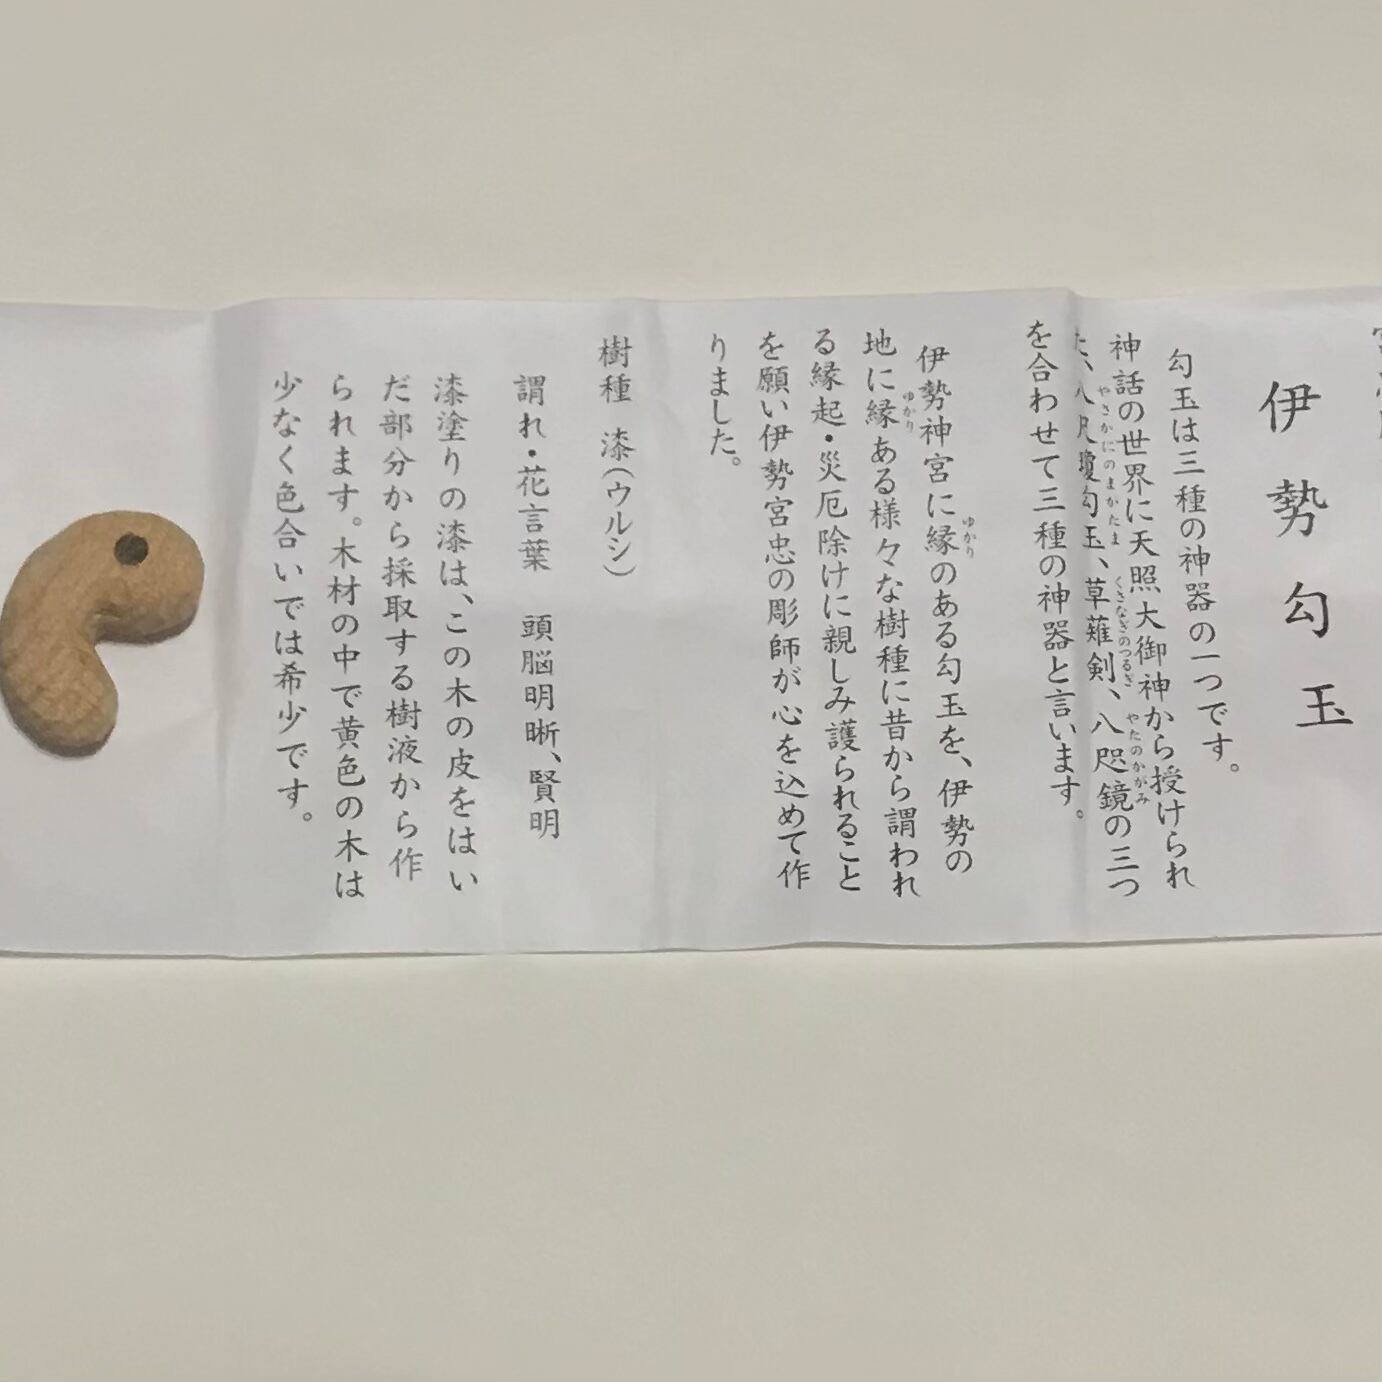 伊勢勾玉
勾玉は三種の神器の一つです。
神話の世界に天照大御神から授けられ
た、八尺瓊勾玉、草薙剣、八咫鏡の三つ
やさかにのまがたま
くさなぎのつるぎ
やたのかがみ
を合わせて三種の神器と言います。
伊勢神宮に縁のある勾玉を、伊勢の
ゆかり
地に縁ある様々な樹種に昔から謂われ
ゆかり
る縁起・災厄除けに親しみ護られること
を願い伊勢宮忠の彫師が心を込めて作
りました。
樹種 漆(ウルシ)
謂れ・花言葉 頭脳明晰、賢明
漆塗りの漆は、この木の皮をはい
だ部分から採取する樹液から作
られます。木材の中で黄色の木は
少なく色合いでは希少です。